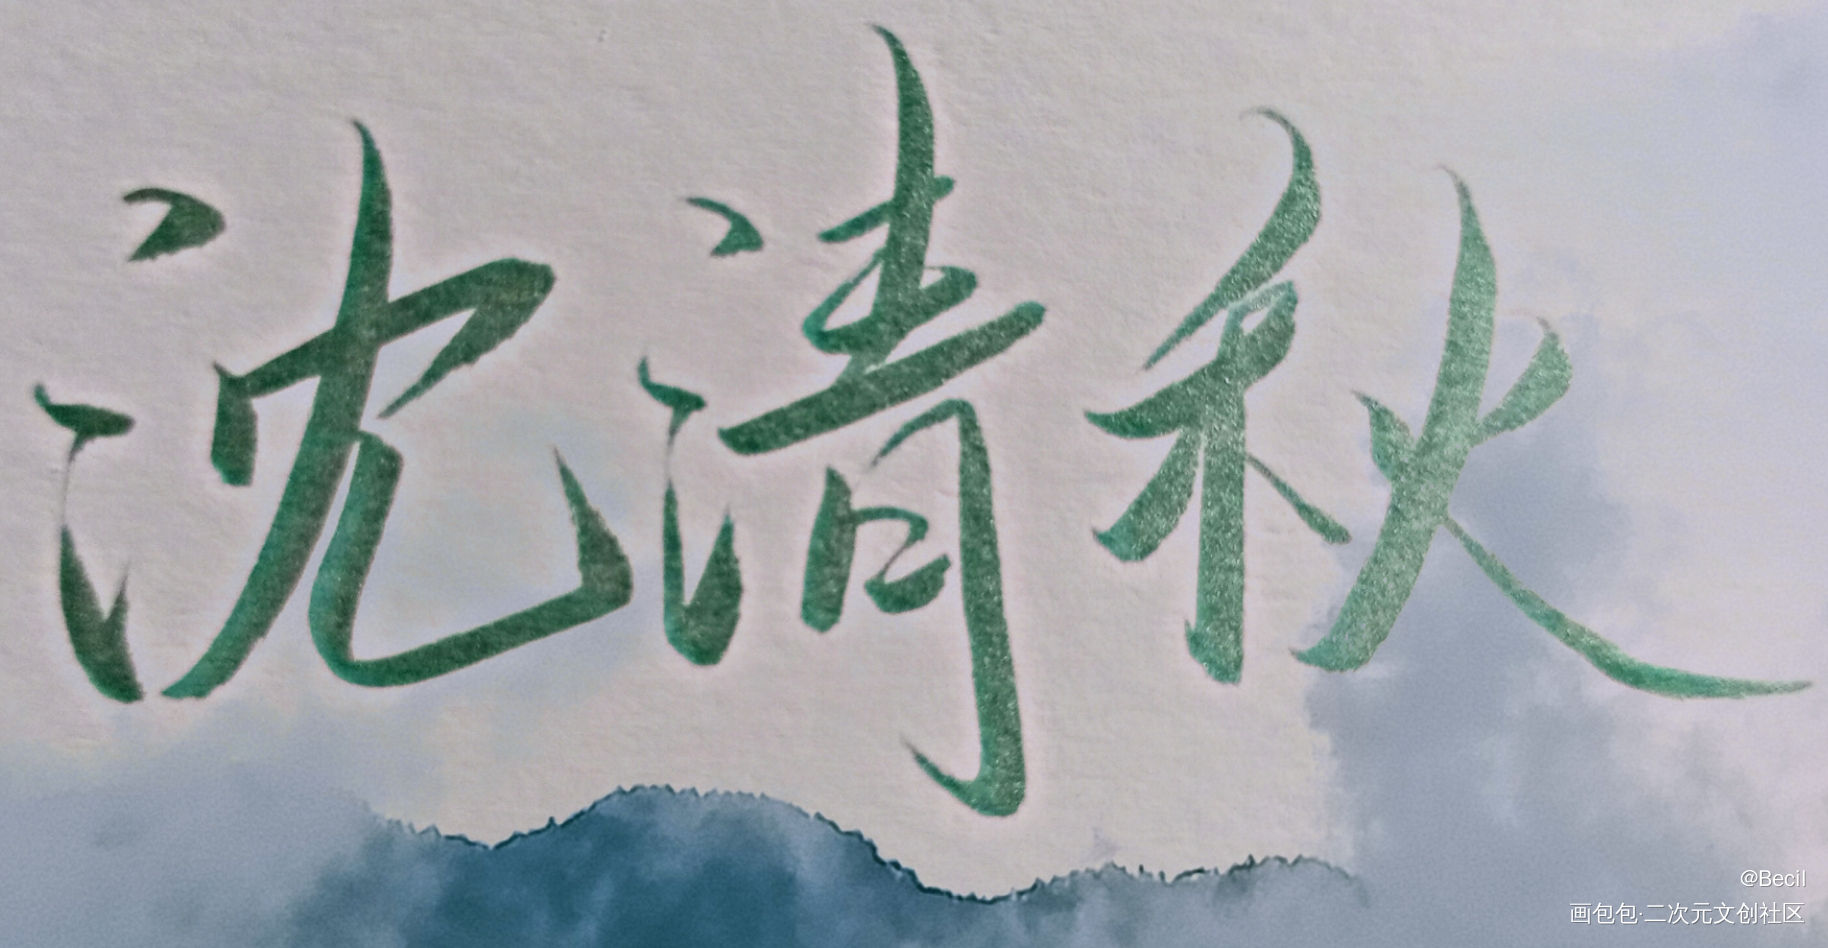 沈清秋
@Becil
画包包·二次元文创社区